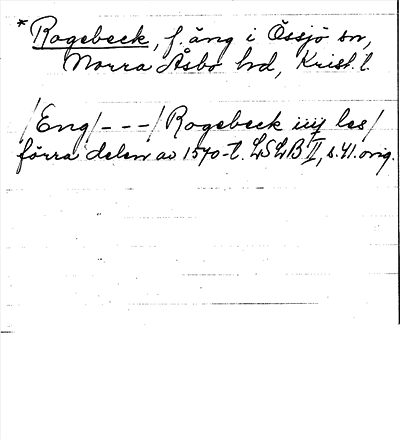 * Rogebeck, f. äng i Össjö sn,
Norra Åsbo hd, Krist. l.
/Eng/ - - - / Rogebeck iiij las/
förra delen av 1570-t. LSLB II, s. 41. orig.